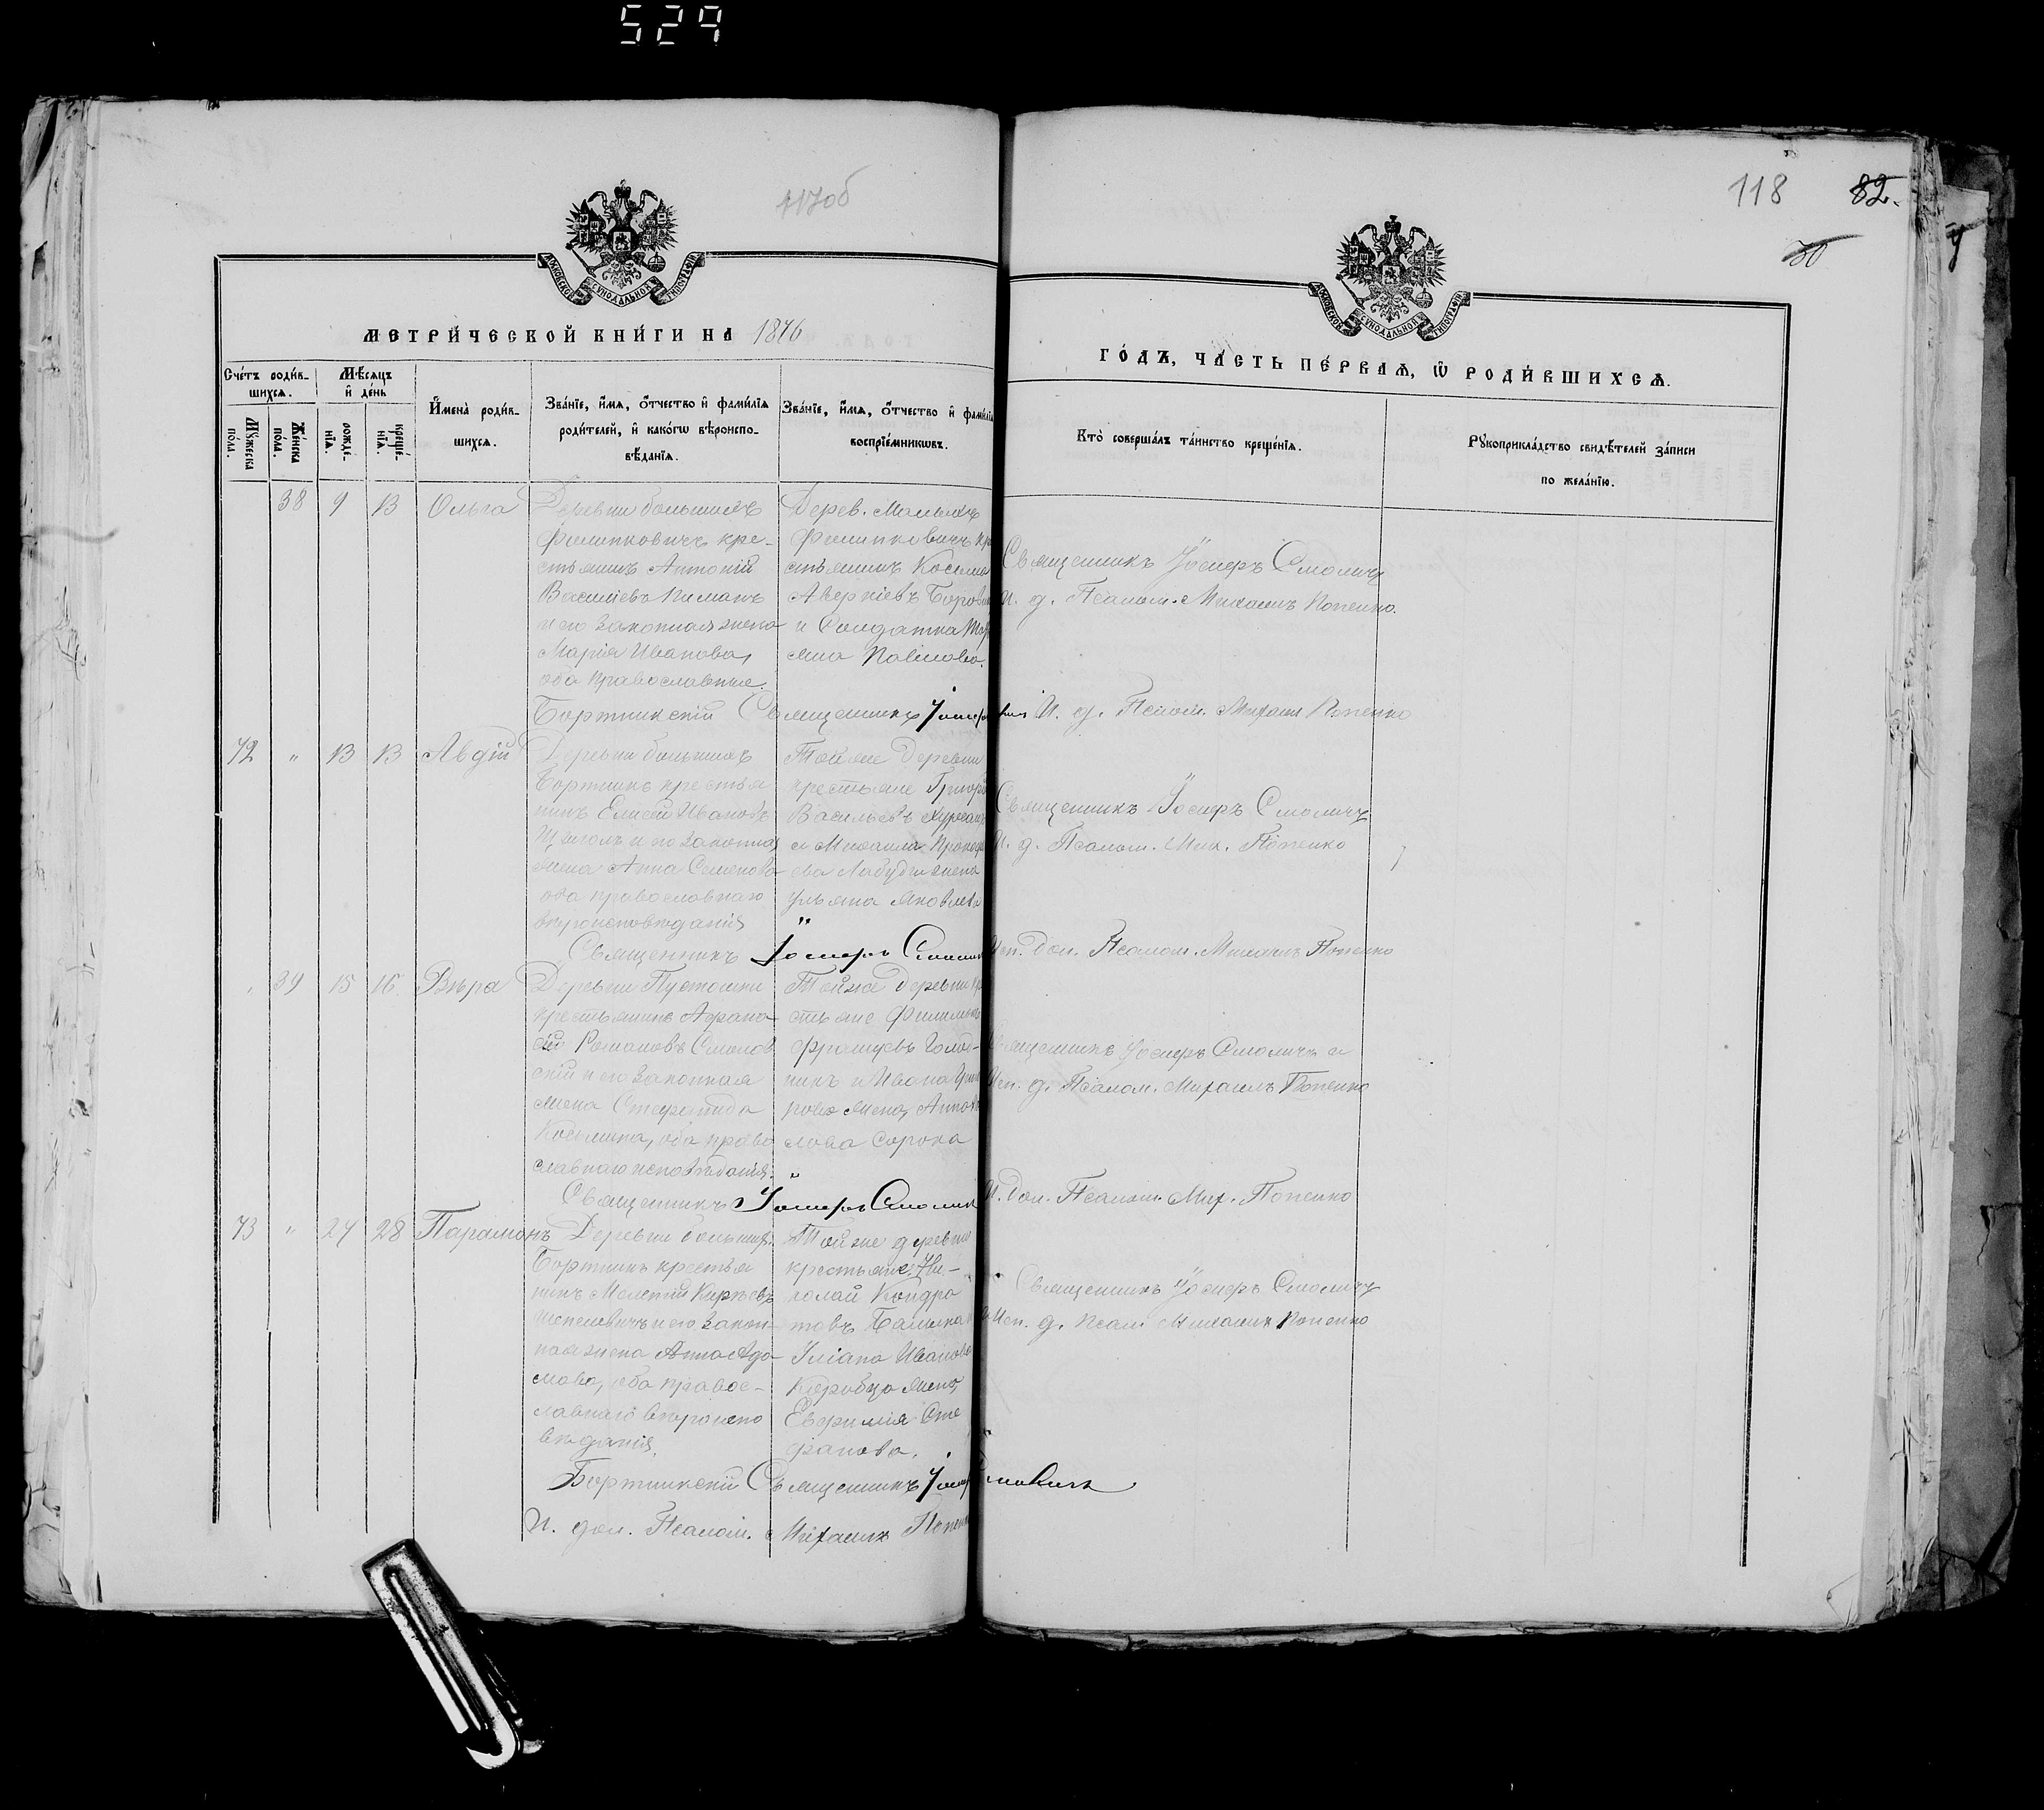 529
117об
118 82.
30
МОСКОВСКОЙ СѴНОДАЛЬНОЙ ТИПОГРАФІИ
МОСКОВСКОЙ СѴНОДАЛЬНОЙ ТИПОГРАФІИ
МЕТРИ́ЧЕСКОЙ КНИ́ГИ НА 1876
ГО́ДЪ, ЧА́СТЬ ПЕ́РВАѦ, Ѡ РОДИ́ВШИХСѦ.
Сче́тъ роди́в-
шихсѧ.
Мꙋ́жеска по́ла.
Же́нска по́ла.
Мѣ́сѧцъ
и҆ де́нь
рожде́-
нїѧ.
креще́-
нїѧ.
И҆мена̀ роди́в-
шихсѧ.
Зва́нїе, и҆́мѧ, ѻ҆́тчество и҆ фами́лїѧ
роди́телей, и҆ како́гѡ вѣроиспо-
вѣ́данїѧ.
Зва́нїе, и҆́мѧ, ѻ҆́тчество и҆ фами́лїѧ
воспрїе́мникѡвъ.
Кто̀ соверша́лъ та́инство креще́нїѧ.
Рꙋкоприкла́дство свидѣ́телей за́писи
по жела́нїю.
38 9 13 Ольга
Деревни большихъ
Филипковичъ кре-
стьянинъ Антоній
Василіевъ
и его законная жена
Марія Иванова,
оба православные.
Дерев. Малыхъ
Филипковичъ кре
стьянинъ Косьма
Аверкіевъ
и Солдатка
Павлова.
Священникъ Іосифъ Смоличъ
И. д. Псалом. Михаилъ Попенко.
Бортникскій Священникъ И. д. Псалом. Михаил Попенко
72 " 13 13 Авдій
Деревни большихъ
Бортникъ крестья
нинъ Елисей Ивановъ
и его законная
жена Анна Семенова
оба православнаго
вѣроисповѣданія
Той же деревни
крестьяне Григорій
Васильевъ
и Михаила
жена
Ульяна Яковлева
Священникъ Іосифъ Смоличъ
И. д. Псалом. Мих. Попенко
Священникъ Іосифъ Смоличъ Исп. дол. Псалом. Михаилъ Попенко
39 15 16 Вѣра
Деревни Пустошки
крестьянинъ Афана-
сій Романовъ
и его законная
жена Стефанида
Косьмина, оба право
славнаго исповѣданія.
Той же деревни кре
стьяне
и Ивана
жена,
Сорока
Священникъ Іосифъ Смоличъ и
Исп. д. Псалом. Михаилъ Попенко
Священникъ Іосифъ Смоличъ И. дол. Псалом. Мих. Попенко
73 " 24 28 Парамонъ
Деревни больших.
Бортникъ крестья
нинъ Мелетій
и его закон-
ная жена Анна Ада-
мова, оба правос-
лавнаго вѣроиспо
вѣданія.
Той же деревни
крестьяне: Ни-
колай Кондра
товъ
Иванова
жена,
Евфимія Сте
фанова.
Священникъ Іосифъ Смоличъ
Исп. д. Псал. Михаилъ Попенко
Бортникскій Священникъ
И. дол. Псалом. Михаилъ Попенко